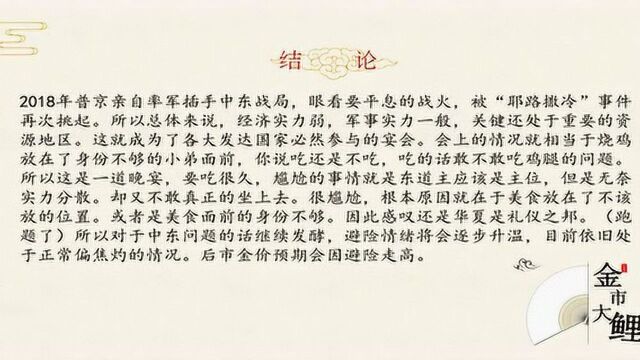 结论
2018年普京亲自率军插手中东战局，眼看要平息的战火，被“耶路撒冷”事件
再次挑起。所以总体来说，经济实力弱，军事实力一般，关键还处于重要的资
源地区。这就成为了各大发达国家必然参与的宴会。会上的情况就相当于烧鸡
放在了身份不够的小弟面前，你说吃还是不吃，吃的话敢不敢吃鸡腿的问题。
所以这是一道晚宴，要吃很久，尴尬的事情就是东道主应该是主位，但是无奈
实力分散。却又不敢真正的坐上去。很尴尬，根本原因就在于美食放在了不该
放的位置。或者是美食面前的身份不够。因此感叹还是华夏是礼仪之邦。（跑
题了）所以对于中东问题的话继续发酵，避险情绪将会逐步升温，目前依旧处
于正常偏焦灼的情况。后市金价预期会因避险走高。
金市大鲤